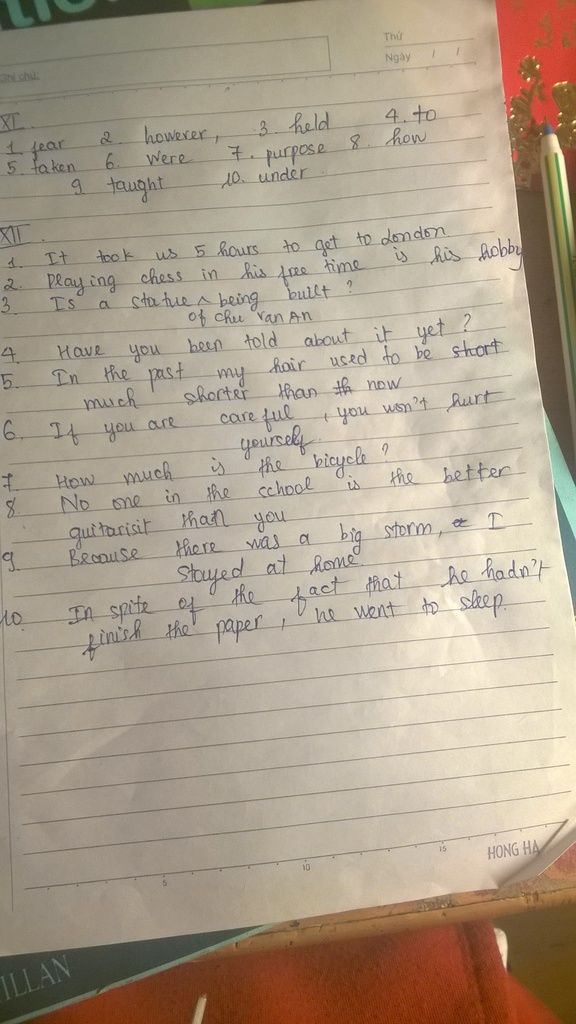 Ghi chú:
Thứ
Ngày / /
XI.
1. fear 2. however, 3. held 4. to
5. taken 6. were 7. purpose 8. how
9. taught 10. under.
XII.
1. It took us 5 hours to get to London
2. Playing chess in his free time is his hobby
3. Is a statue ^ being built ?
of Chu Van An
4. Have you been told about it yet ?
5. In the past my hair used to be short
much shorter than th now
6. If you are careful, you won't hurt
yourself.
7 How much is the bicycle ?
8. No one in the school is the better
guitarisit than you
9. Because there was a big storm, I
stayed at home.
10 In spite of the fact that he hadn't
finish the paper, he went to sleep.
5 10 15 HONG HA
ILLAN